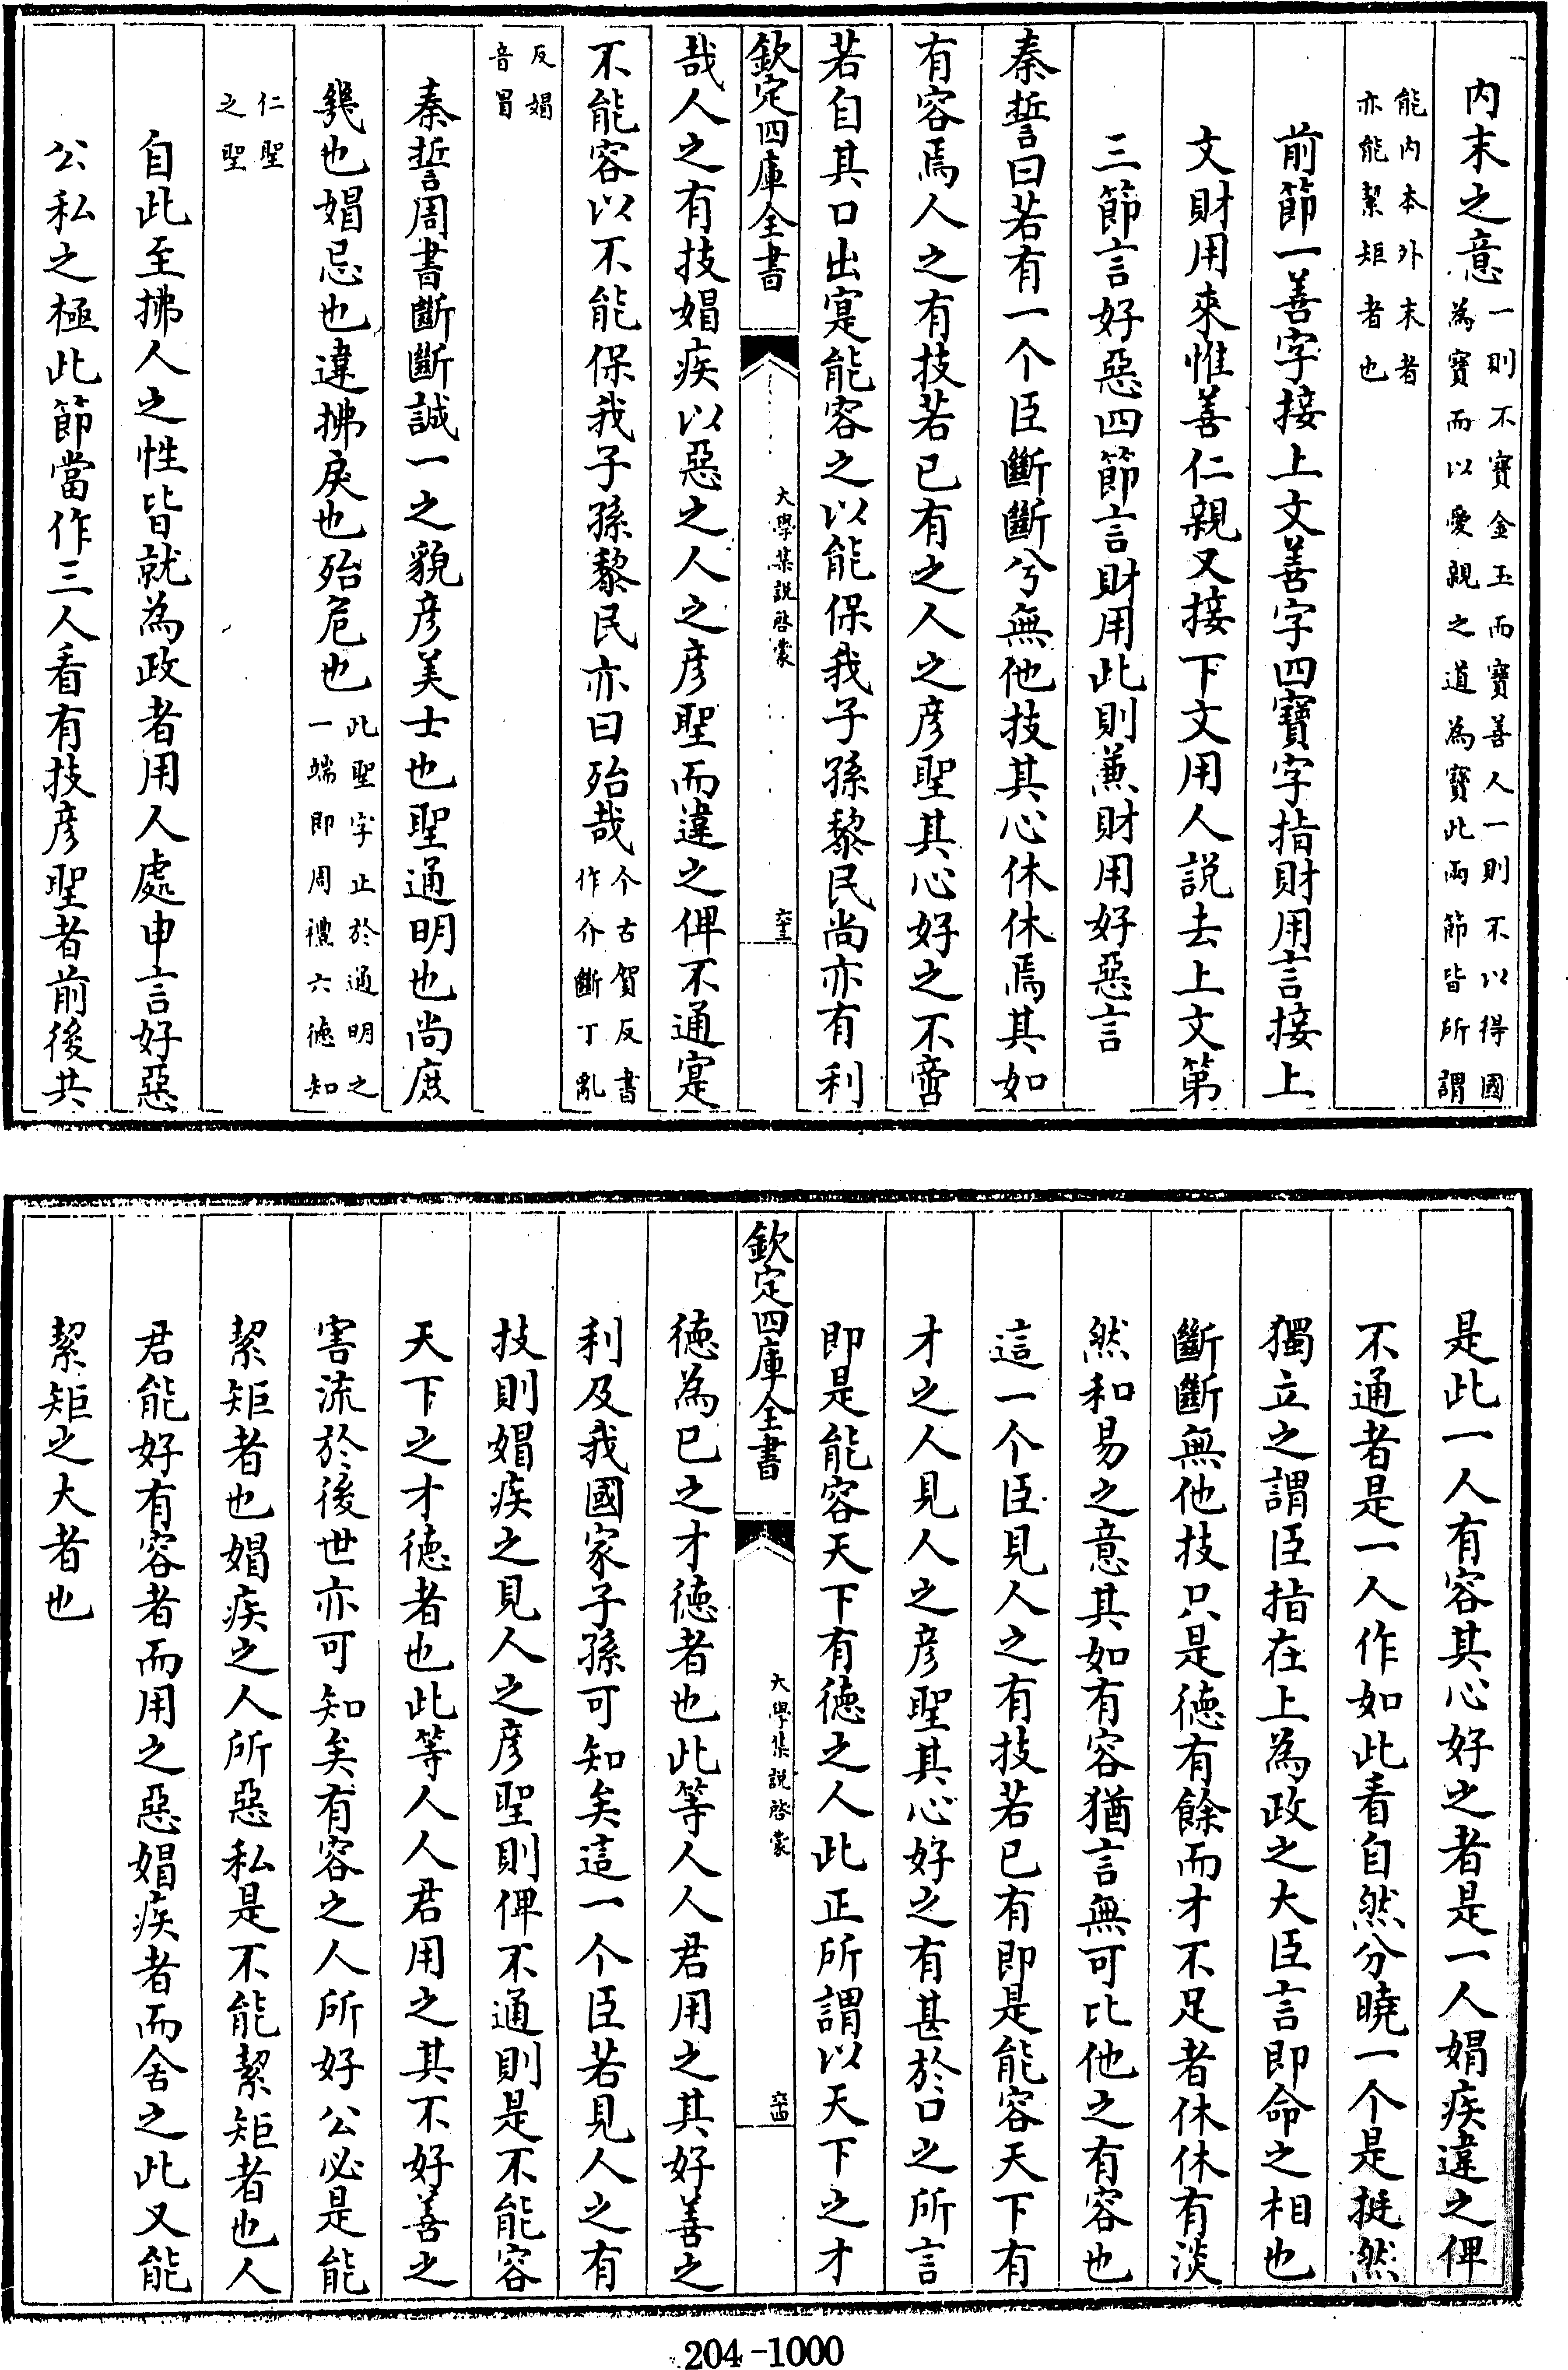 內末之意一則不寶金玉而寶善人一則不以得國為寶而以愛親之道為寶此兩節皆所謂
能內本外末者亦能絜矩者也
前節一善字接上文善字四寶字指財用言接上
文財用來惟善仁親又接下文用人說去上文第
三節言好惡四節言財用此則兼財用好惡言
秦誓曰若有一个臣斷斷兮無他技其心休休焉其如
有容焉人之有技若已有之人之彦聖其心好之不啻
若自其口出寔能容之以能保我子孫黎民尚亦有利
欽定四庫全書
大學集説啓蒙
六十三
哉人之有技媢疾以惡之人之彦聖而違之俾不通寔
不能容以不能保我子孫黎民亦曰殆哉个古賀反書作介斷丁亂
反媢音冒
秦誓周書斷斷誠一之貌彦美士也聖通明也尚庶
幾也媢忌也違拂戾也殆危也此聖字止於通明之一端即周禮六德知
仁聖之聖
自此至拂人之性皆就為政者用人處申言好惡
公私之極此節當作三人看有技彦聖者前後共
是此一人有容其心好之者是一人媢疾違之俾
不通者是一人作如此看自然分曉一个是挺然
獨立之謂臣指在上為政之大臣言即命之相也
斷斷無他技只是德有餘而才不足者休休有淡
然和易之意其如有容猶言無可比他之有容也
這一个臣見人之有技若已有即是能容天下有
才之人見人之彦聖其心好之有甚於口之所言
即是能容天下有德之人此正所謂以天下之才
欽定四庫全書
大學集説啓蒙
六十四
德為已之才德者也此等人人君用之其好善之
利及我國家子孫可知矣這一个臣若見人之有
技則媢疾之見人之彦聖則俾不通則是不能容
天下之才德者也此等人人君用之其不好善之
害流於後世亦可知矣有容之人所好公必是能
絜矩者也媢疾之人所惡私是不能絜矩者也人
君能好有容者而用之惡媢疾者而舍之此又能
絜矩之大者也
204-1000